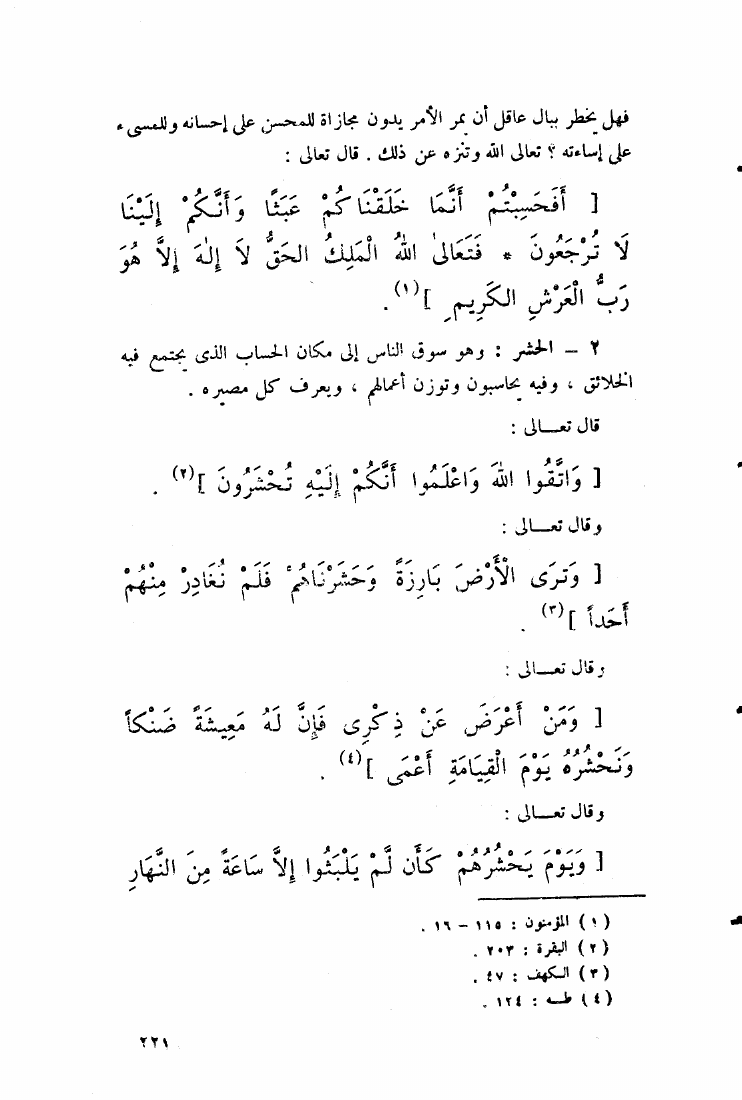 فهل يخطر ببال عاقل أن يمر الأمر بدون مجازاة للمحسن على إحسانه وللمسىء
على إساءته ؟ تعالى الله وتنزه عن ذلك . قال تعالى :
[ أَفَحَسِبْتُمْ أَنَّمَا خَلَقْنَاكُمْ عَبَثًا وَأَنَّكُمْ إِلَيْنَا
لَا تُرْجَعُونَ * فَتَعَالىٰ اللهُ الْمَلِكُ الحَقُّ لاَ إِلهَ إِلاَّ هُوَ
رَبُّ الْعَرْشِ الكَرِيمِ ](١) .
٢ – الحشر : وهو سوق الناس إلى مكان الحساب الذى يجتمع فيه
الخلائق ، وفيه يحاسبون وتوزن أعمالهم ، ويعرف كل مصيره .
قال تعـالى :
[ وَاتَّقُوا اللهَ وَاعْلَمُوا أَنَّكُمْ إِلَيْهِ تُحْشَرُونَ ](٢) .
وقال تعـالى :
[ وَتَرَى الْأَرْضَ بَارِزَةً وَحَشَرْنَاهُمْ فَلَمْ نُغَادِرْ مِنْهُمْ
أَحَداً ](٣) .
وقال تعـالى :
[ وَمَنْ أَعْرَضَ عَنْ ذِكْرِى فَإِنَّ لَهُ مَعِيشَةً ضَنْكاً
وَنَحْشُرُهُ يَوْمَ الْقِيَامَةِ أَعْمَى ](٤) .
وقال تعـالى :
[ وَيَوْمَ يَحْشُرُهُمْ كَأَن لَّمْ يَلْبَثُوا إِلاَّ سَاعَةً مِنَ النَّهَارِ
(١) المؤمنون : ١١٥ – ١٦ .
(٢) البقرة : ٢٠٣ .
(٣) الكهف : ٤٧ .
(٤) طـه : ١٢٤ .
٢٢١